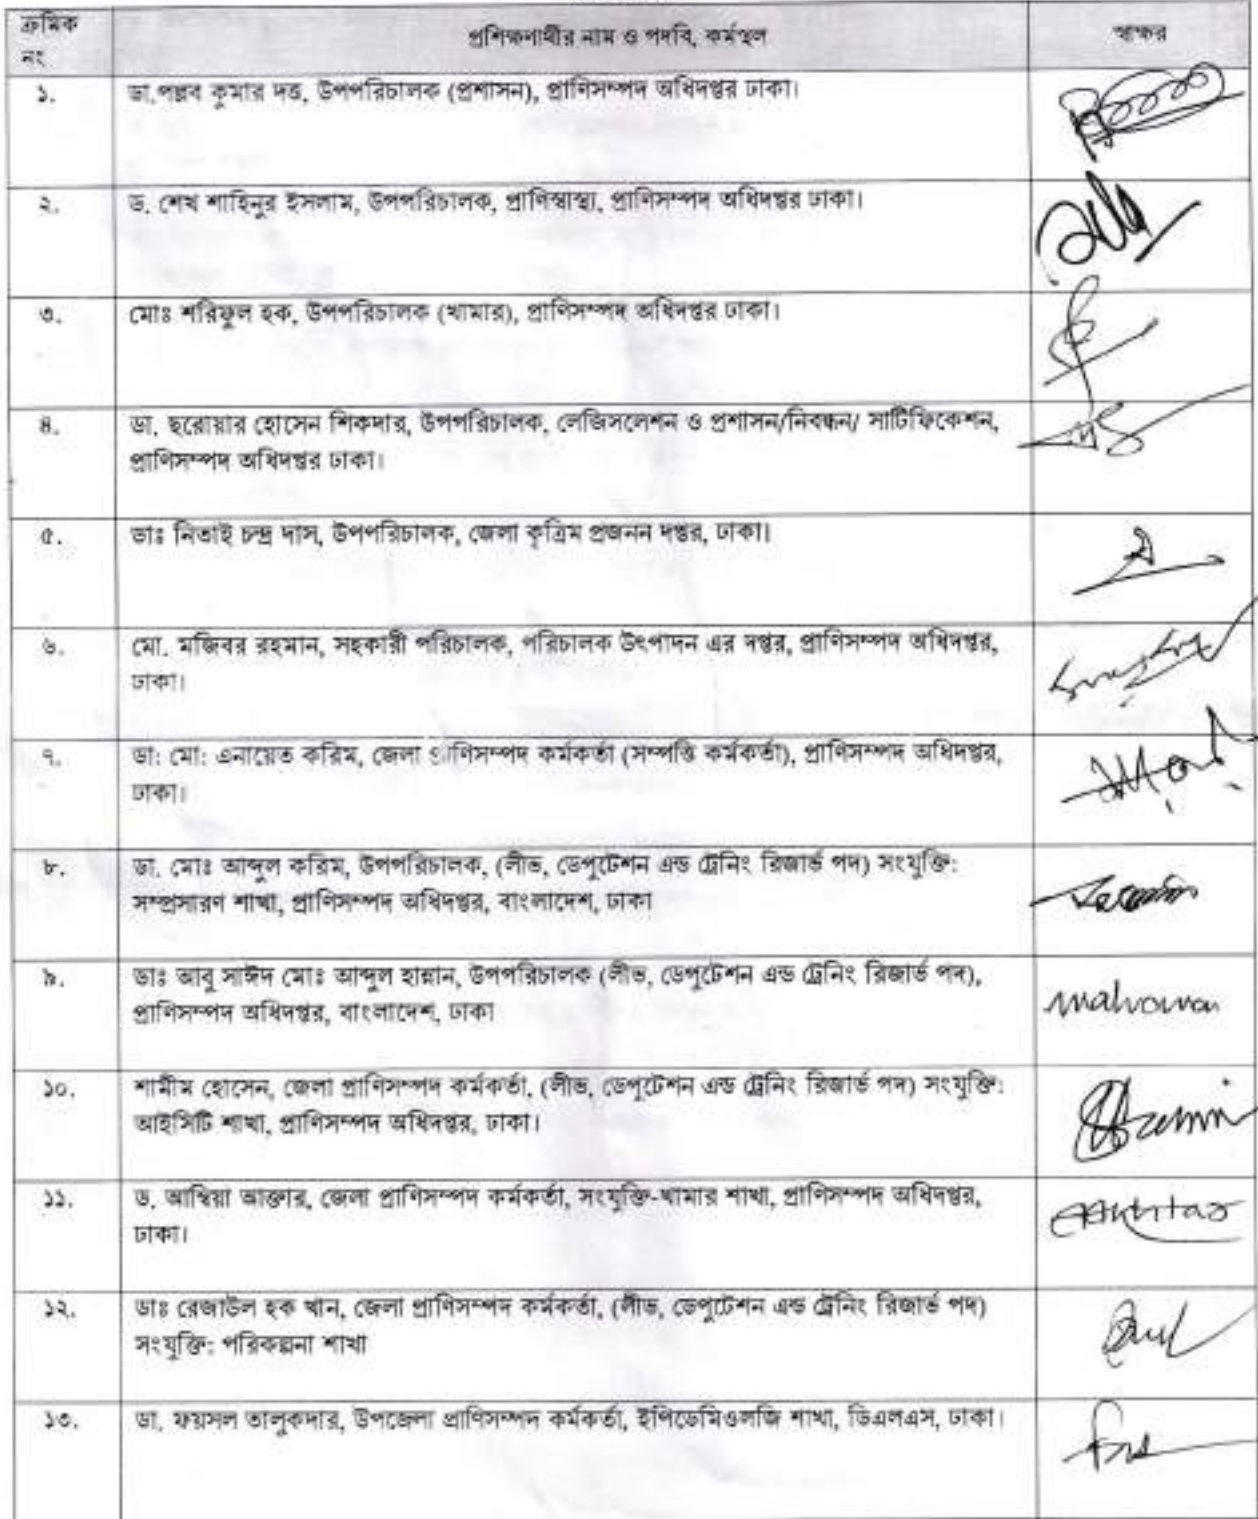 ক্রমিক নং প্রশিক্ষণার্থীর নাম ও পদবি, কর্মস্থল স্বাক্ষর
১. ডা.পল্লব কুমার দত্ত, উপপরিচালক (প্রশাসন), প্রাণিসম্পদ অধিদপ্তর ঢাকা।
২. ড. শেখ শাহিনুর ইসলাম, উপপরিচালক, প্রাণিস্বাস্থ্য, প্রাণিসম্পদ অধিদপ্তর ঢাকা।
৩. মোঃ শরিফুল হক, উপপরিচালক (খামার), প্রাণিসম্পদ অধিদপ্তর ঢাকা।
৪. ডা. ছরোয়ার হোসেন শিকদার, উপপরিচালক, লেজিসলেশন ও প্রশাসন/নিবন্ধন/ সার্টিফিকেশন,
প্রাণিসম্পদ অধিদপ্তর ঢাকা।
৫. ডাঃ নিতাই চন্দ্র দাস, উপপরিচালক, জেলা কৃত্রিম প্রজনন দপ্তর, ঢাকা।
৬. মো. মজিবর রহমান, সহকারী পরিচালক, পরিচালক উৎপাদন এর দপ্তর, প্রাণিসম্পদ অধিদপ্তর,
ঢাকা।
৭. ডা: মো: এনায়েত করিম, জেলা প্রাণিসম্পদ কর্মকর্তা (সম্পত্তি কর্মকর্তা), প্রাণিসম্পদ অধিদপ্তর,
ঢাকা।
৮. ডা. মোঃ আব্দুল করিম, উপপরিচালক, (লীভ, ডেপুটেশন এন্ড ট্রেনিং রিজার্ভ পদ) সংযুক্তি:
সম্প্রসারণ শাখা, প্রাণিসম্পদ অধিদপ্তর, বাংলাদেশ, ঢাকা
৯. ডাঃ আবু সাঈদ মোঃ আব্দুল হান্নান, উপপরিচালক (লীভ, ডেপুটেশন এন্ড ট্রেনিং রিজার্ভ পদ),
প্রাণিসম্পদ অধিদপ্তর, বাংলাদেশ, ঢাকা
১০. শামীম হোসেন, জেলা প্রাণিসম্পদ কর্মকর্তা, (লীভ, ডেপুটেশন এন্ড ট্রেনিং রিজার্ভ পদ) সংযুক্তি:
আইসিটি শাখা, প্রাণিসম্পদ অধিদপ্তর, ঢাকা।
১১. ড. আম্বিয়া আক্তার, জেলা প্রাণিসম্পদ কর্মকর্তা, সংযুক্তি-খামার শাখা, প্রাণিসম্পদ অধিদপ্তর,
ঢাকা।
১২. ডাঃ রেজাউল হক খান, জেলা প্রাণিসম্পদ কর্মকর্তা, (লীভ, ডেপুটেশন এন্ড ট্রেনিং রিজার্ভ পদ)
সংযুক্তি: পরিকল্পনা শাখা
১৩. ডা. ফয়সল তালুকদার, উপজেলা প্রাণিসম্পদ কর্মকর্তা, ইপিডেমিওলজি শাখা, ডিএলএস, ঢাকা।